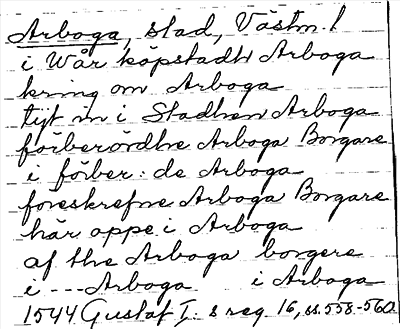 Arboga, stad, Västm. l
i Wår köpstadh Arboga
kring om Arboga
tijt in i Stadhen Arboga
förberördhe Arboga Borgare
i förber: de Arboga
foreskrefne Arboga Borgare
här oppe i Arboga
af the Arboga borgere
i --- Arboga i Arboga
1544 Gustaf I:s reg. 16, ss. 558-560